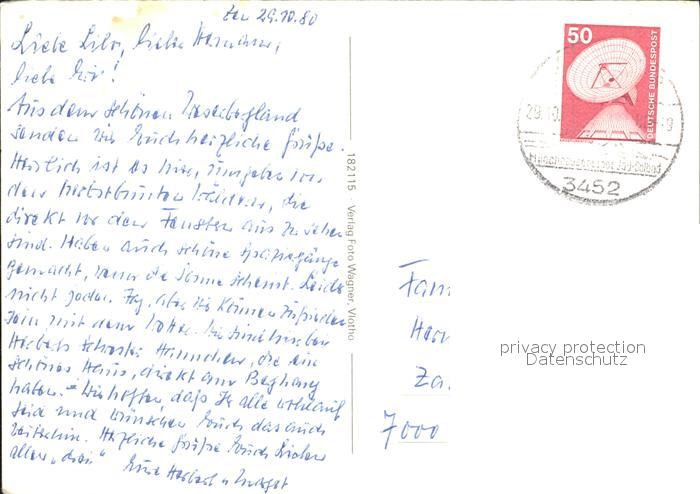 den 29.10.80
Liebe Lilo, lieber Hermann,
liebe
Aus dem schönen Weserbergland
senden wir Euch herzliche Grüße.
Herrlich ist es hier, umgeben von
den herbstbunten Wäldern, die
direkt vor dem Fenster aus zu sehen
sind. Haben auch schöne Spaziergänge
gemacht, wenn die Sonne scheint. Leider
nicht jeden Tag, aber wir können zufrieden
sein mit dem Wetter. Wir sind hier bei
Herberts Schwester Hannchen, die ein
schönes Haus, direkt am Berghang
haben. - Wir hoffen, daß Ihr alle wohlauf
seid und wünschen Euch das auch
weiterhin. Herzliche Grüße Euch Lieben
allen "drei" Eure Herbert u.
182115 Verlag Foto Wagner, Vlotho
50
DEUTSCHE BUNDESPOST
29.10.
3452
Fam
Herr
Za.
7000
privacy protection
Datenschutz